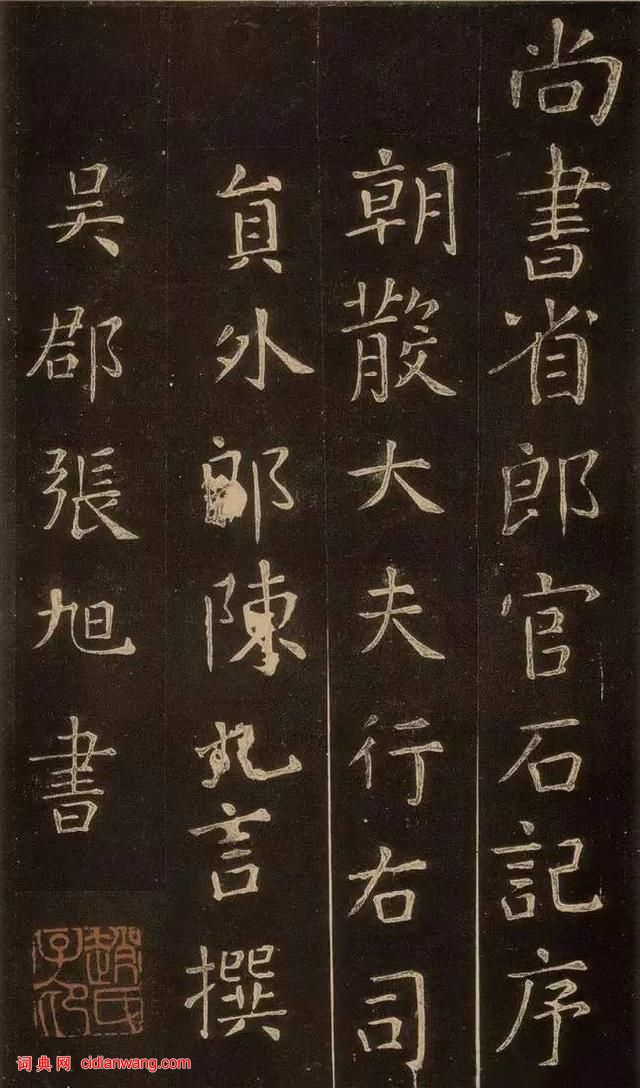 尚書省郎官石記序
朝散大夫行右司
貟外郎陳九言撰
吴郡張旭書
趙氏子印
词典网 cidianwang.com